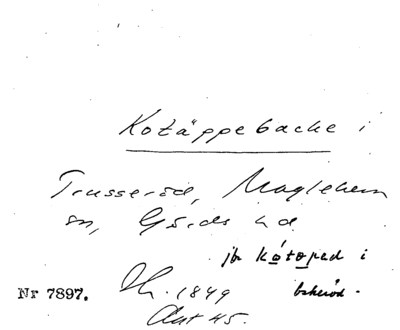 Kotäppebacke i
Trusseröd, Maglehem
sn, Gärds hd
jb kótoped i
bskeröd.
Nr 7897. Th. 1849
Ant 45.